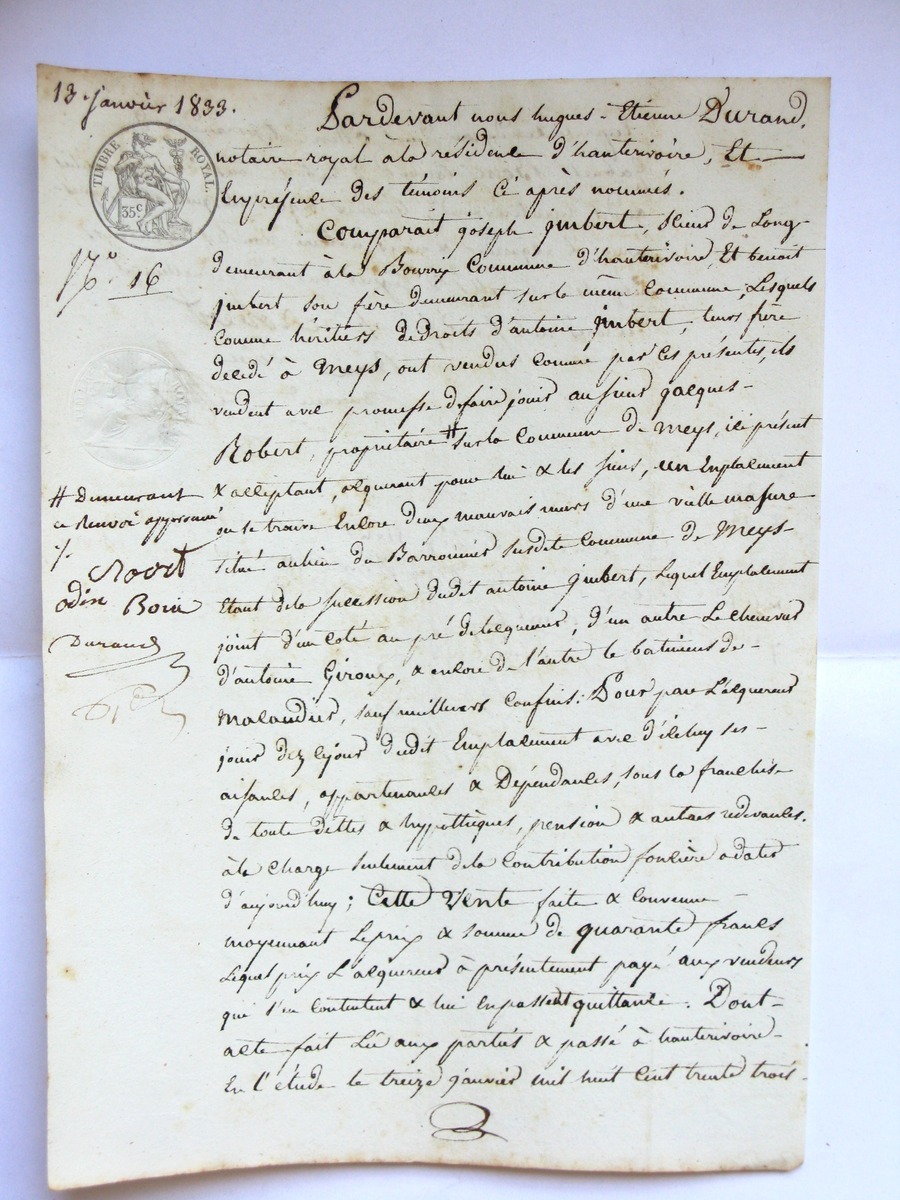 13 janvier 1833.
TIMBRE ROYAL.
35c
No 16
Pardevant nous hugues-Etienne Durand,
notaire royal à la résidence d'hauterivoire, Et
En présence des témoins cé après nommés.
Comparait joseph jmbert, Sieur de Long
demeurant à la Commune d'hauterivoire, Et benoit
jmbert son frère demeurant sur la même Commune, Lesquels
Comme héritiers de droits d'antoine jmbert, leurs frère
décédé à Meys, ont vendus Comme par Ces présentes, ils
vendent avec promesse de faire jouir au sieur jacques
Robert, propriétaire # sur la Commune de Meys, icé présent
& acceptant, acquerant pour lui & les siens, un Enplacement
ou se trouve Encore deux mauvais murs d'une vielle masure
situé au lieu du Barronnier susdite Commune de Meys
Etant de la succession dudit antoine jmbert, Lequel Emplacement
joint d'un coté au pré de lacquereur, d'un autre Le chenevier
d'antoine Giroux, & encore de l'autre le batiment de
Malandier, sauf meilleurs Confins: Pour par L'acquereur
jouir dez ce jour dudit Emplacement avec d'icéluy ses
aisances, appartenances & Dépendances, sous la franchise
de toute dettes & hypothèques, pension & autres redevances.
à la charge seulement de la Contribution foncière a dater
d'aujourd'huy; Cette Vente faite & Convenue
moyennant Le prix & somme de quarante francs
Lequel prix L'acquereur à présentement payé aux vendeurs
qui s'en Contentent & lui en passent quittance: Dont
acte fait Lu aux parties & passé à hauterivoire
En l'étude le treize janvier mil huit cent trente trois
# Demeurant
ce Renvoi approuvé
odin Boin
Durand